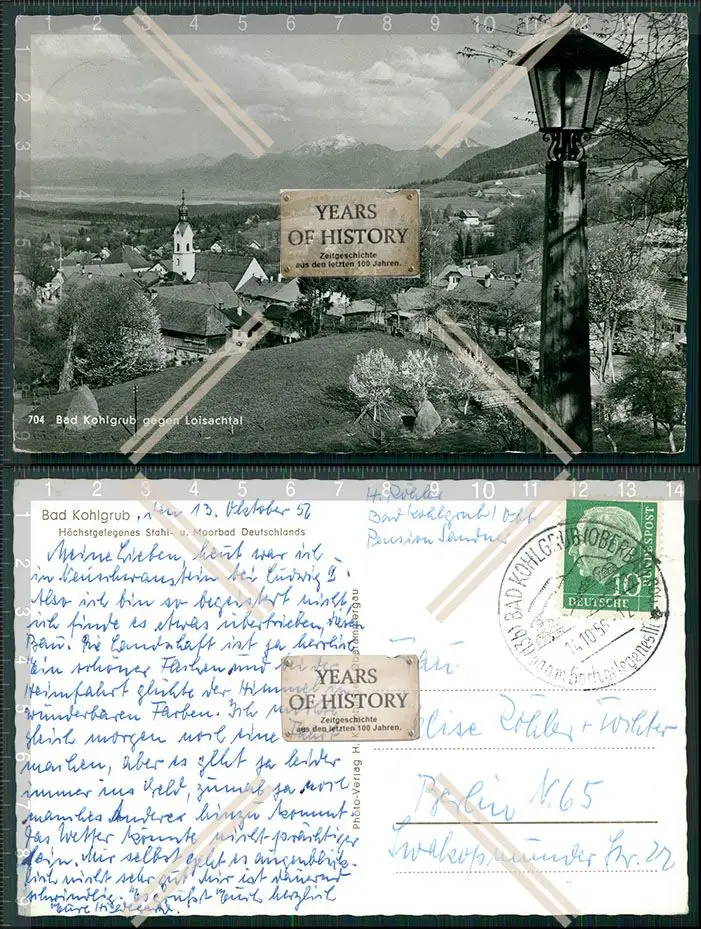 YEARS
OF HISTORY
Zeitgeschichte
aus den letzten 100 Jahren.
704 Bad Kohlgrub gegen Loisachtal
Bad Kohlgrub, den 13. Oktober 56
Höchstgelegenes Stahl- u. Moorbad Deutschlands
Meine Lieben, heut war ich
in Neuschwanstein bei Ludwig II.
Also ich bin so begeistert nicht,
ich finde es etwas übertrieben, diesen
Bau. Die Landschaft ist ja herrlich
Ein schöner Flecken und bei der
Heimfahrt glühte der Himmel in
wunderbaren Farben. Ich
gleich morgen noch eine Fahrt
machen, aber es geht ja leider
immer ins Geld, zumal ja noch
manches Andere hinzu kommt.
Das Wetter könnte nicht prächtiger
sein. Mir selbst geht es augenblick-
lich nicht sehr gut, mir ist dauernd
schwindlig. Es grüsst Euch herzlich
Eure Hildegard.
H. Röhler
Bad Kohlgrub / Obb
Pension Sandner
(13b) BAD KOHLGRUB (OBERBAY)
14.10.56.-12
10
DEUTSCHE
BUNDESPOST
Photo-Verlag H. Oberammergau
YEARS
OF HISTORY
Zeitgeschichte
aus den letzten 100 Jahren.
Frau
Elise Röhler + Tochter
Berlin N.65
Swakopmunder Str. 22